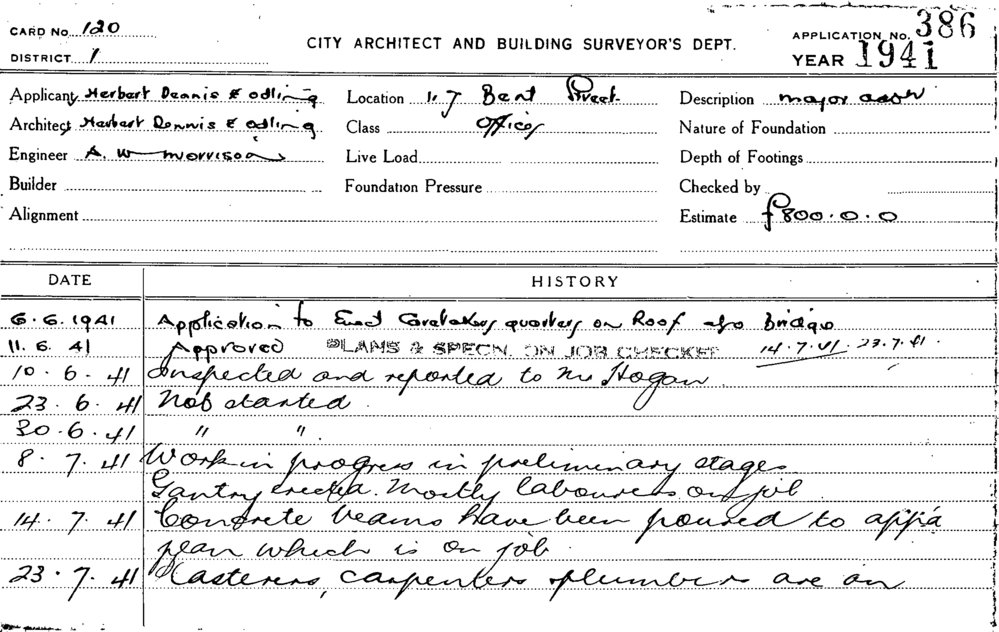 CARD No. 120
DISTRICT 1
CITY ARCHITECT AND BUILDING SURVEYOR'S DEPT.
APPLICATION No. 386
YEAR 1941
Applicant Herbert Dennis & odling
Location 17 Bent Street
Description major
Architect Herbert Dennis & odling
Class Offices
Nature of Foundation
Engineer A. W morrison
Live Load
Depth of Footings
Builder
Foundation Pressure
Checked by
Alignment
Estimate £800.0.0
DATE HISTORY
6.6.1941 Application to Erect Caretakers quarters on Roof
11.6.41 Approved PLANS & SPECN. ON JOB CHECKED 14.7.41 . 23.7.41.
10.6.41 Inspected and reported to Mr Hogan.
23.6.41 Not started.
30.6.41 " ".
8.7.41 Work in progress in preliminary stages
Gantry erected. Mostly labourers on job
14.7.41 Concrete beams have been poured to app'd
plan which is on job.
23.7.41 Plasterers, carpenters plumbers are on